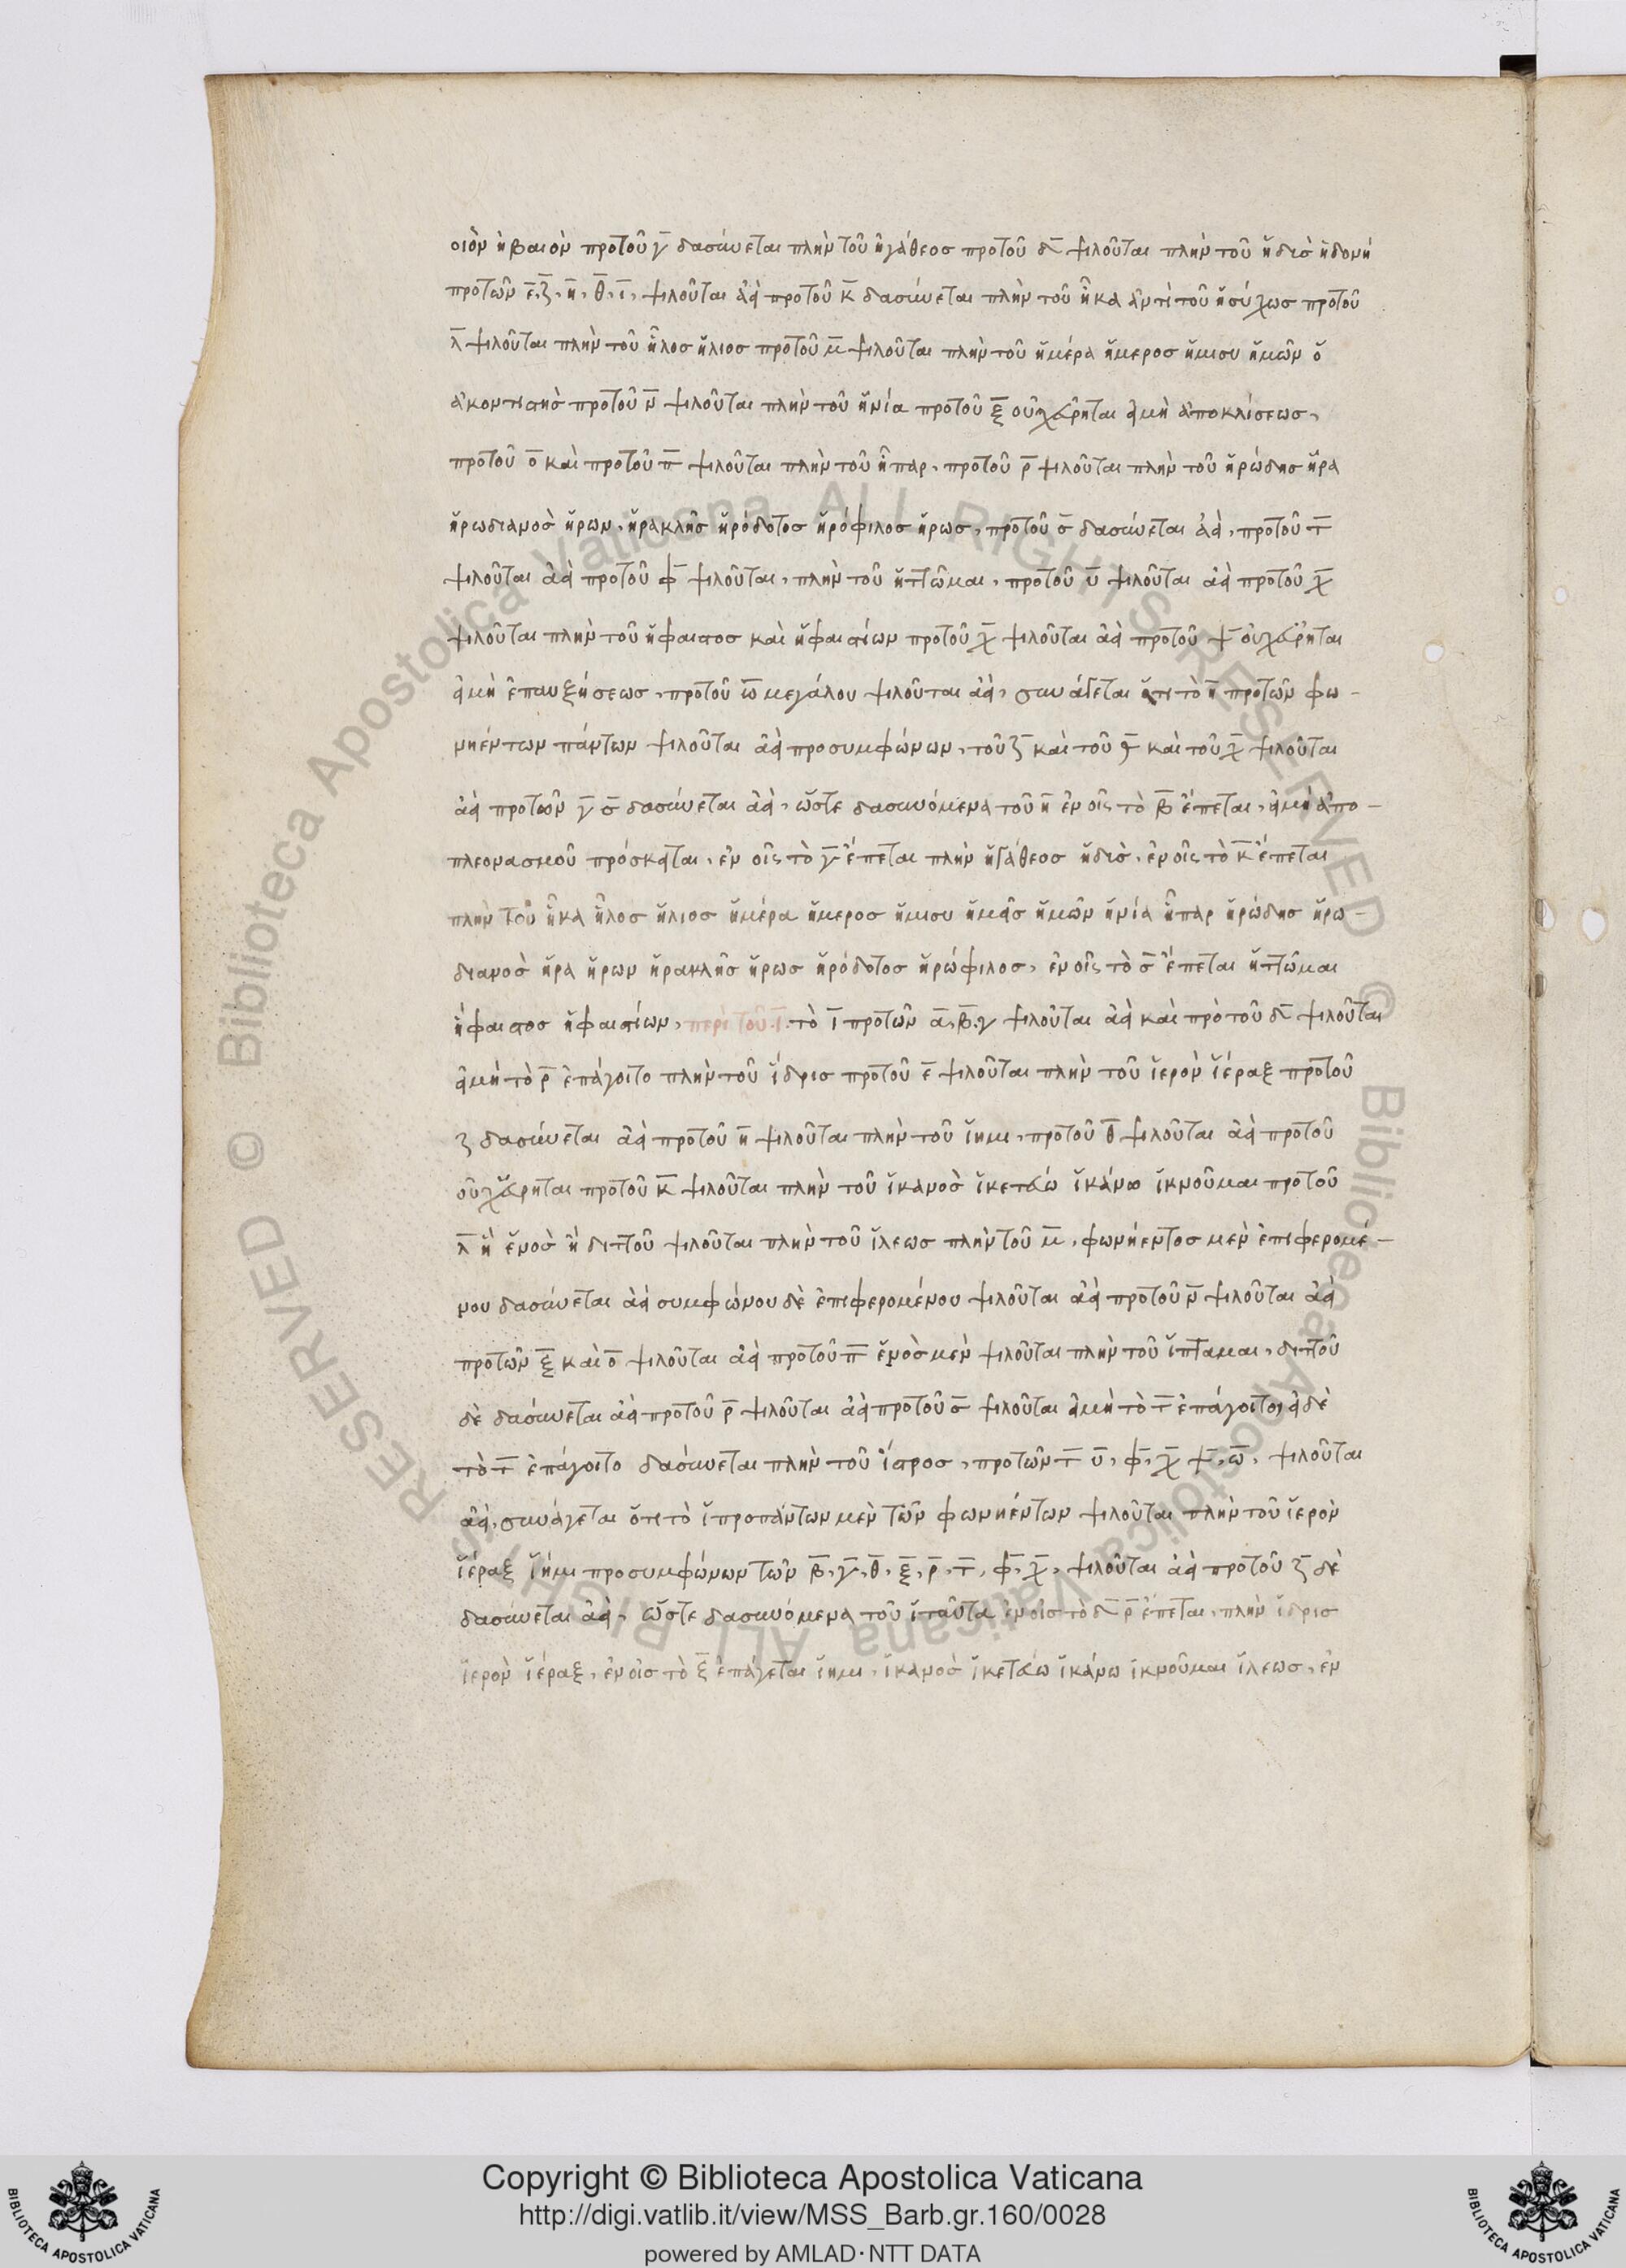 οιὸν ἠβαιὸν προτοῦ γ̅ δασύνεται πλὴν τοῦ ἠγάθεοσ προτοῦ δ̅ ψιλοῦται πλὴν τοῦ ἥδισ ἡδονή
προτῶν ε̅, ζ̅, η̅, θ̅, ι̅, ψιλοῦται ἀεὶ προτοῦ κ̅ δασύνεται πλὴν τοῦ ἦκα ἀντὶ τοῦ ἡσύχωσ προτοῦ
λ̅ ψιλοῦται πλὴν τοῦ ἧλοσ ἥλιοσ προτοῦ μ̅ ψιλοῦται πλὴν τοῦ ἡμέρα ἥμεροσ ἥμισυ ἡμῶν ὅ
ἀκοντιστὴσ προτοῦ ν̅ ψιλοῦται πλὴν τοῦ ἡνία προτοῦ ξ̅ οὐχ εὕρηται εἰμὴ ἀποκλίσεωσ,
προτοῦ ο̅ καὶ προτοῦ π̅ ψιλοῦται πλὴν τοῦ ἧπαρ, προτοῦ ρ̅ ψιλοῦται πλὴν τοῦ ἡρώδησ ἥρα
ἡρωδιανοσ ἥρων, ἡρακλῆσ ἡρόδοτοσ ἡρόφιλοσ ἥρωσ, προτοῦ σ̅ δασύνεται ἀεὶ, προτοῦ τ̅
ψιλοῦται ἀεὶ προτοῦ φ̅ ψιλοῦται, πλὴν τοῦ ἡττῶμαι, προτοῦ υ̅ ψιλοῦται ἀεὶ προτοῦ χ̅
ψιλοῦται πλὴν τοῦ ἥφαιστοσ καὶ ἡφαιστίων προτοῦ χ̅ ψιλοῦται ἀεὶ προτοῦ ψ̅ οὐχ εὕρηται
εἰμὴ ἐπαυξήσεωσ, προτοῦ ω̅ μεγάλου ψιλοῦται ἀεὶ, συνάγεται ὅτι τὸ η̅ προτῶν φω-
νηέντων πάντων ψιλοῦται ἀεὶ προσυμφώνων, τοῦ ζ̅ καὶ τοῦ τ̅ καὶ τοῦ χ̅ ψιλοῦται
ἀεὶ προτῶν γ̅ σ̅ δασύνεται ἀεὶ, ὥστε δασυνόμενα τοῦ η̅ ἐν οἷς τὸ β̅ ἕπεται, εἰμὴ ἀπο-
πλεονασμοῦ πρόσκειται, ἐν οἷς τὸ γ̅ ἕπεται πλὴν ἠγάθεοσ ἥδισ, ἐν οἷς τὸ κ̅ ἕπεται
πλὴν τοῦ ἦκα ἧλοσ ἥλιοσ ἡμέρα ἥμεροσ ἥμισυ ἡμᾶσ ἡμῶν ἡνία ἧπαρ ἡρώδησ ἡρω-
διανοσ ἥρα ἥρων ἡρακλῆσ ἥρωσ ἡρόδοτοσ ἡρώφιλοσ, ἐν οἷς τὸ σ̅ ἕπεται ἡττῶμαι
ἥφαιστοσ ἡφαιστίων, περὶ τοῦ ι̅. τὸ ι̅ προτῶν α̅, β̅, γ ψιλοῦται ἀεὶ καὶ πρὸ τοῦ δ̅ ψιλοῦται
εἰμὴ τὸ ρ̅ ἐπάγοιτο πλὴν τοῦ ἴδρισ προτοῦ ε̅ ψιλοῦται πλὴν τοῦ ἱερὸν ἱέραξ προτοῦ
ζ δασύνεται ἀεὶ προτοῦ η̅ ψιλοῦται πλὴν τοῦ ἵημι, προτοῦ θ̅ ψιλοῦται ἀεὶ προτοῦ
οὐχ εὕρηται προτοῦ κ̅ ψιλοῦται πλὴν τοῦ ἱκανοσ ἱκετεύω ἱκάνω ἱκνοῦμαι προτοῦ
λ̅ ἢ ἑνοσ ἢ διττοῦ ψιλοῦται πλὴν τοῦ ἵλεωσ πλὴν τοῦ μ̅, φωνήεντοσ μὲν ἐπιφερομέ-
νου δασύνεται ἀεὶ συμφώνου δὲ ἐπιφερομένου ψιλοῦται ἀεὶ προτοῦ ν̅ ψιλοῦται ἀεὶ
προτῶν ξ̅ καὶ ο̅ ψιλοῦται ἀεὶ προτοῦ π̅ ἑνὸσ μὲν ψιλοῦται πλὴν τοῦ ἵπταμαι, διττοῦ
δὲ δασύνεται ἀεὶ προτοῦ ρ̅ ψιλοῦται ἀεὶ προτοῦ σ̅ ψιλοῦται εἰμὴ τὸ τ̅ ἐπάγοιτο, εἰ δὲ
τὸ τ̅ ἐπάγοιτο δασύνεται πλὴν τοῦ ἴστροσ, προτῶν τ̅ υ̅, φ̅, χ̅ ψ̅, ω̅, ψιλοῦται
ἀεὶ, συνάγεται ὅτι τὸ ϊ προπάντων μὲν τῶν φωνηέντων ψιλοῦται πλὴν τοῦ ἱερὸν
ἱέραξ ἵημι προσυμφώνων τῶν β̅, γ̅, θ̅, ξ̅, ρ̅, τ̅, φ̅, χ̅, ψιλοῦται ἀεὶ προτοῦ ζ̅ δὲ
δασύνεται ἀεὶ, ὥστε δασυνόμενα τοῦ ϊ ταῦτα ἐν οἷσ τὸ δ̅ ρ̅ ἕπεται, πλὴν ἴδρισ
ἱερὸν ἱέραξ, ἐν οἷσ τὸ ξ̅ ἐπάγεται ἵημι, ἱκανοσ ἱκετεύω ἱκάνω ἱκνοῦμαι ἵλεωσ, ἐν
Copyright © Biblioteca Apostolica Vaticana
http://digi.vatlib.it/view/MSS_Barb.gr.160/0028
powered by AMLAD·NTT DATA